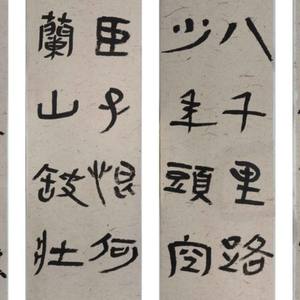 八千里路
少年頭空
臣子恨何
蘭山缺壯